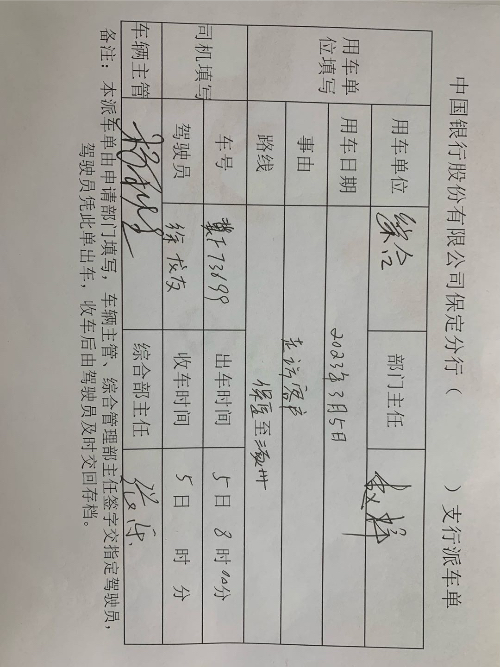 中国银行股份有限公司保定分行（ ）支行派车单
用车单位填写 用车单位 综合 部门主任
用车日期 2023年3月5日
事由 走访客户
路线 保定至涿州
司机填写 车号 冀F73699 出车时间 5日 8时00分
驾驶员 收车时间 5日 时 分
车辆主管 综合部主任
备注：本派车单由申请部门填写，车辆主管、综合管理部主任签字交指定驾驶员，
驾驶员凭此单出车，收车后由驾驶员及时交回存档。